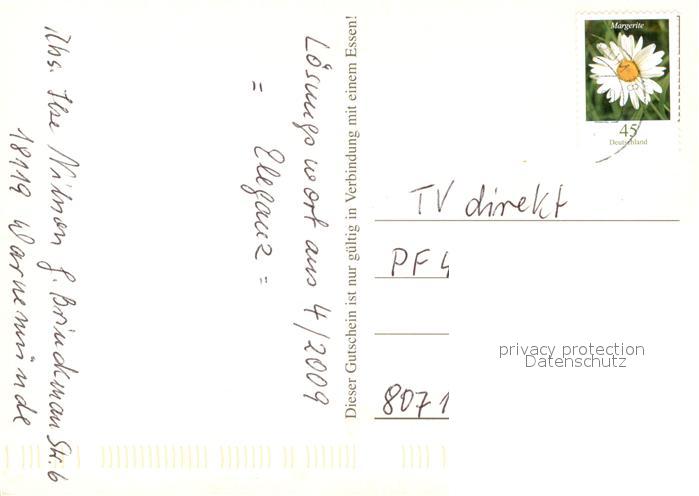 Abs. Ilse
J. Brinckman Str. 6
18119 Warnemünde
= Eleganz =
Lösungswort aus 4/2009
Dieser Gutschein ist nur gültig in Verbindung mit einem Essen!
Margerite
45
Deutschland
TV direkt
PF 4
8071
privacy protection
Datenschutz